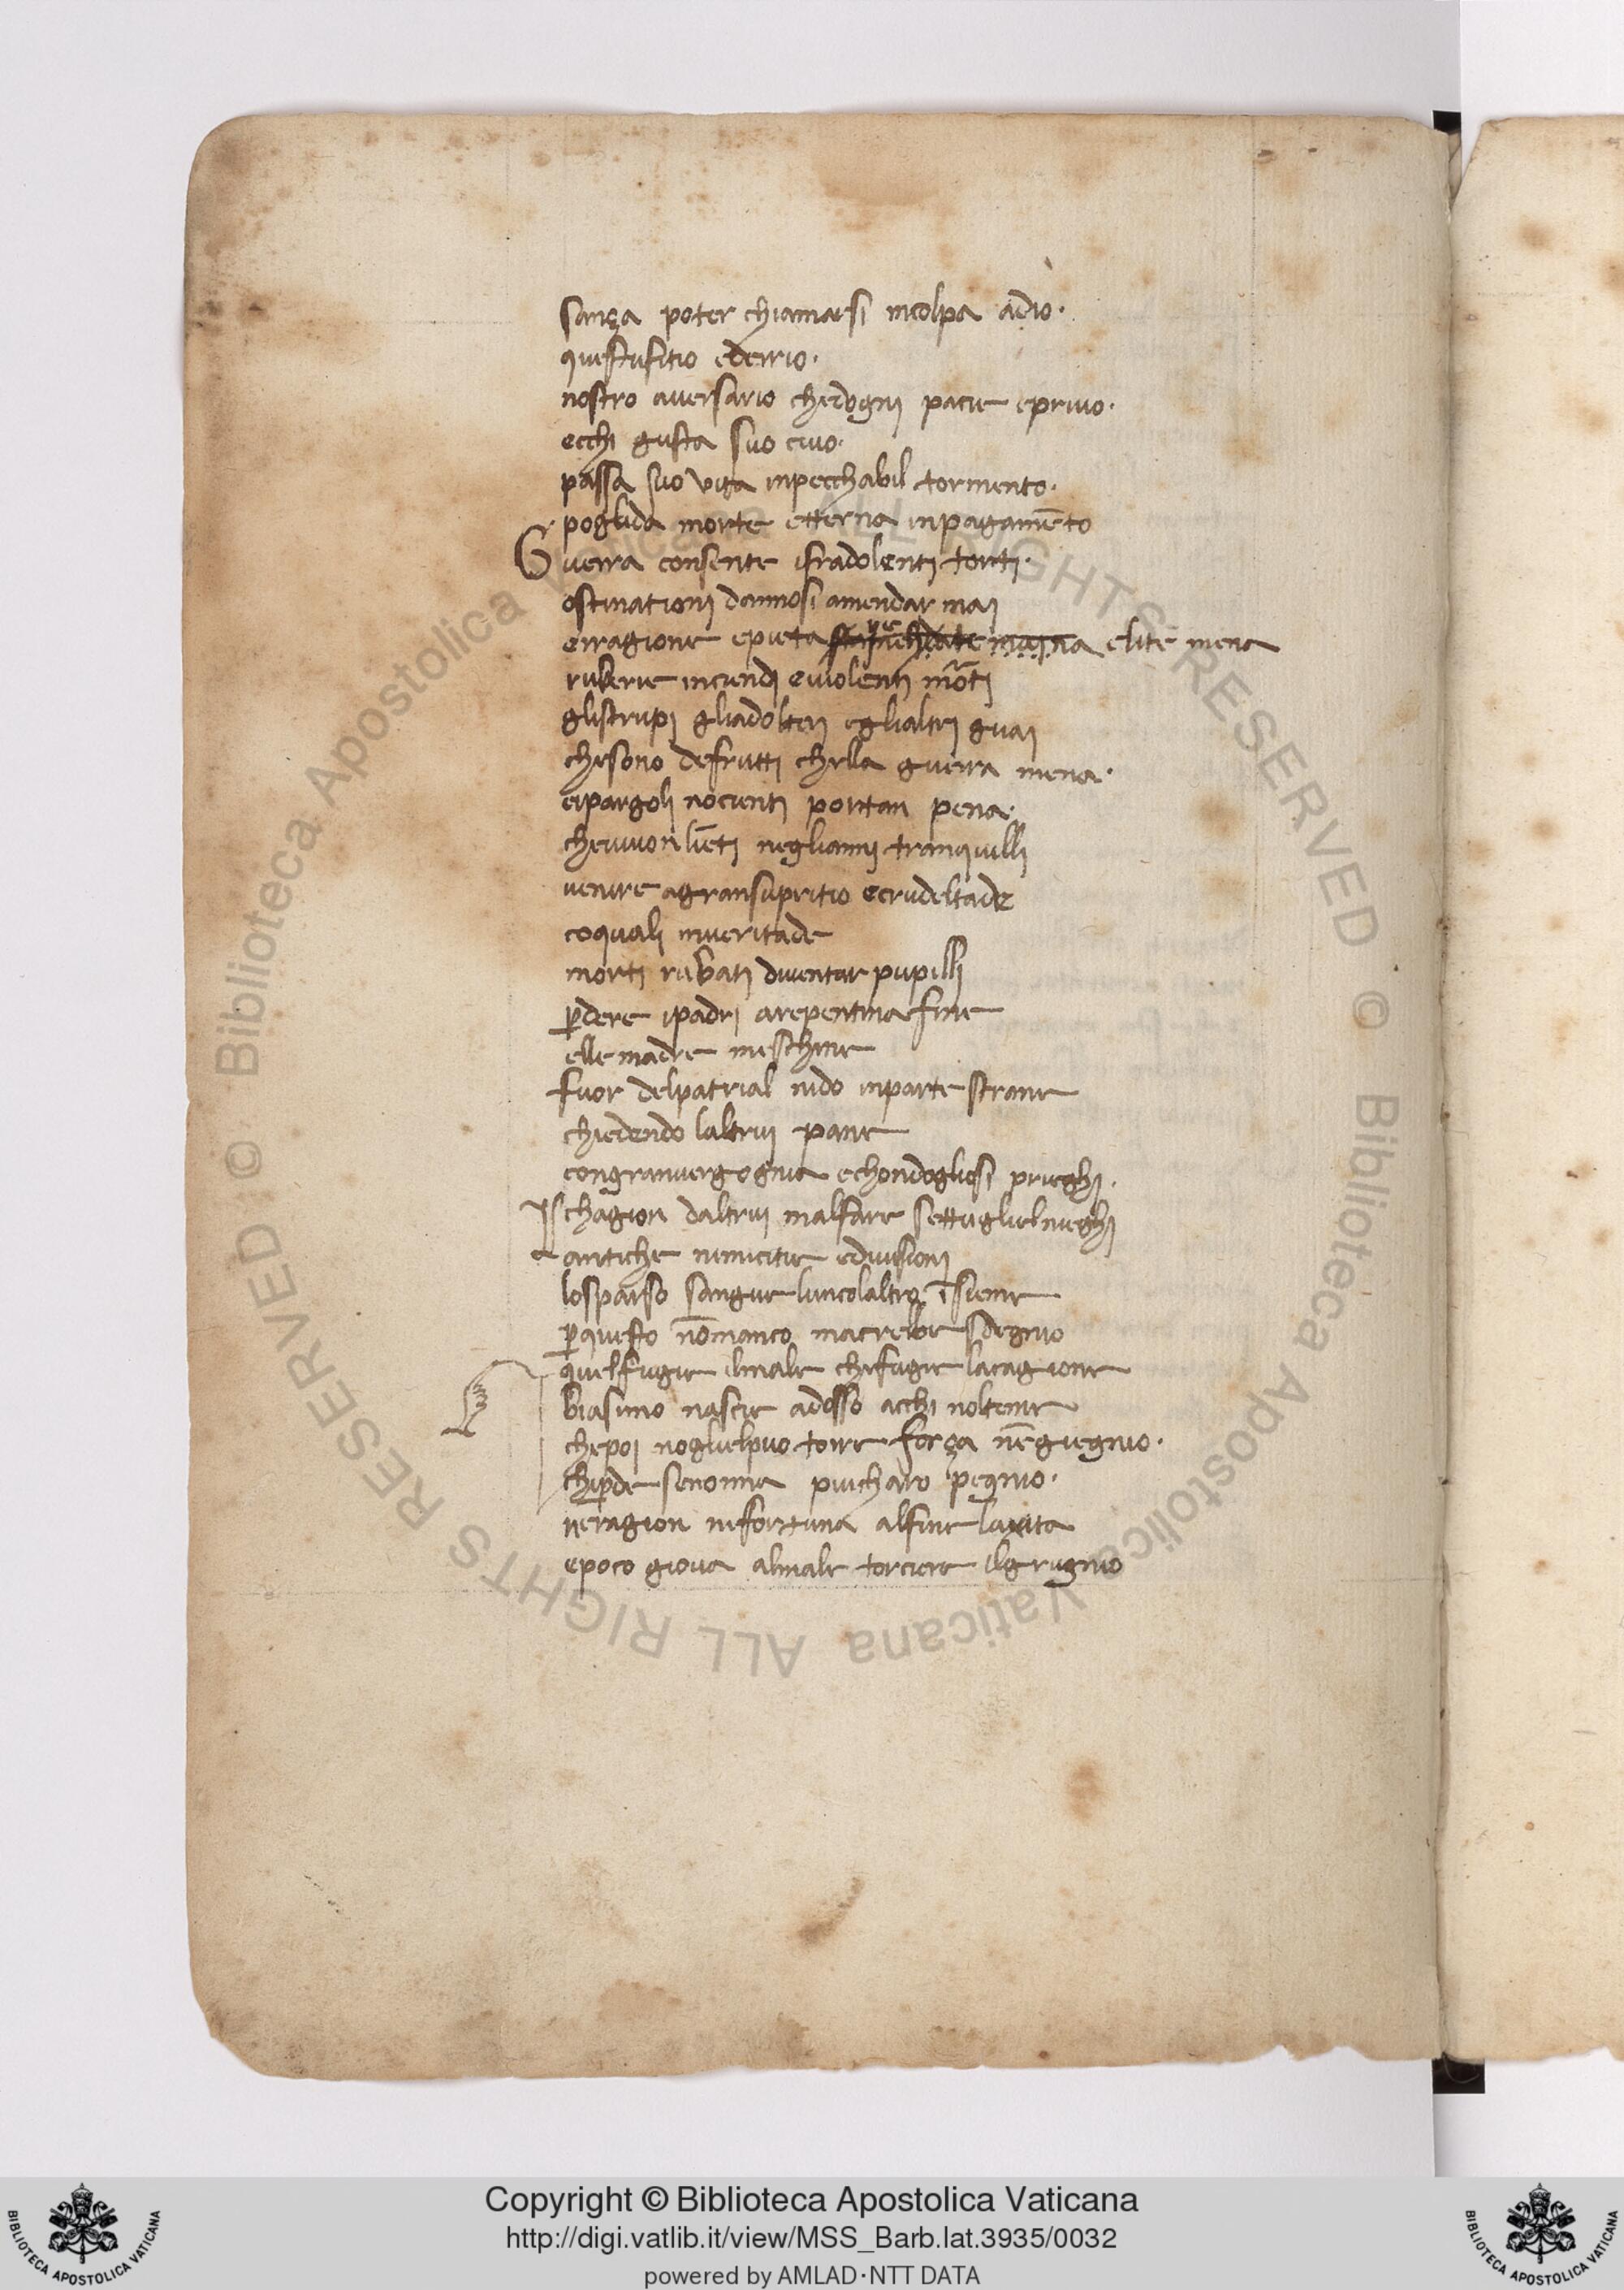 sança poter chiamarsi incolpa adio·
questufitio ederrio·
nostro auersario chedogni pacie epriuo·
ecchi gusta suo ciuo·
passa suo vita inpecchabil tormento·
poglida morte etterna inpagamēto
Guerra consente ifradolenti torti·
ostinationi dannosi amendar mai
erragione epieta elite mena
ruberie incendi euiolenti mōti
glistrupi gliadolteri eglialtri guai
chesono defrutti chella guerra mena·
eipargoli nocienti portan pena·
cheuiuon liēti neglianni tranquilli
uenire agransupritio ecrudeltade
coquali inueritade
morti rubati diuentar pupilli
ꝑdere ipadri arepentina fine
elle madre meschine
fuor delpatrial nido inparte strane
chiedendo laltrui pane
congranuergognia echondogliosi prieghi·
Ischagion daltrui malfare settuglielnieghi
antiche nimicitie ediuisioni
losparso sangue luncolaltro īsieme
ꝑquesto nōmanco macrebbe sdegnio
quelfugie ilmale chefugie lacagione
biasimo nascie adosso acchi nolteme
chepoi noglielpuo torre força nēgiegnio·
cheꝑde senonna piucharo pegnio·
neragion neffortuna alfine laita
epoco gioua almale torciere ilgrugnio
Copyright © Biblioteca Apostolica Vaticana
http://digi.vatlib.it/view/MSS_Barb.lat.3935/0032
powered by AMLAD·NTT DATA
© Biblioteca Apostolica Vaticana ALL RIGHTS RESERVED
© Biblioteca Apostolica Vaticana ALL RIGHTS RESERVED
BIBLIOTECA APOSTOLICA VATICANA
BIBLIOTECA APOSTOLICA VATICANA